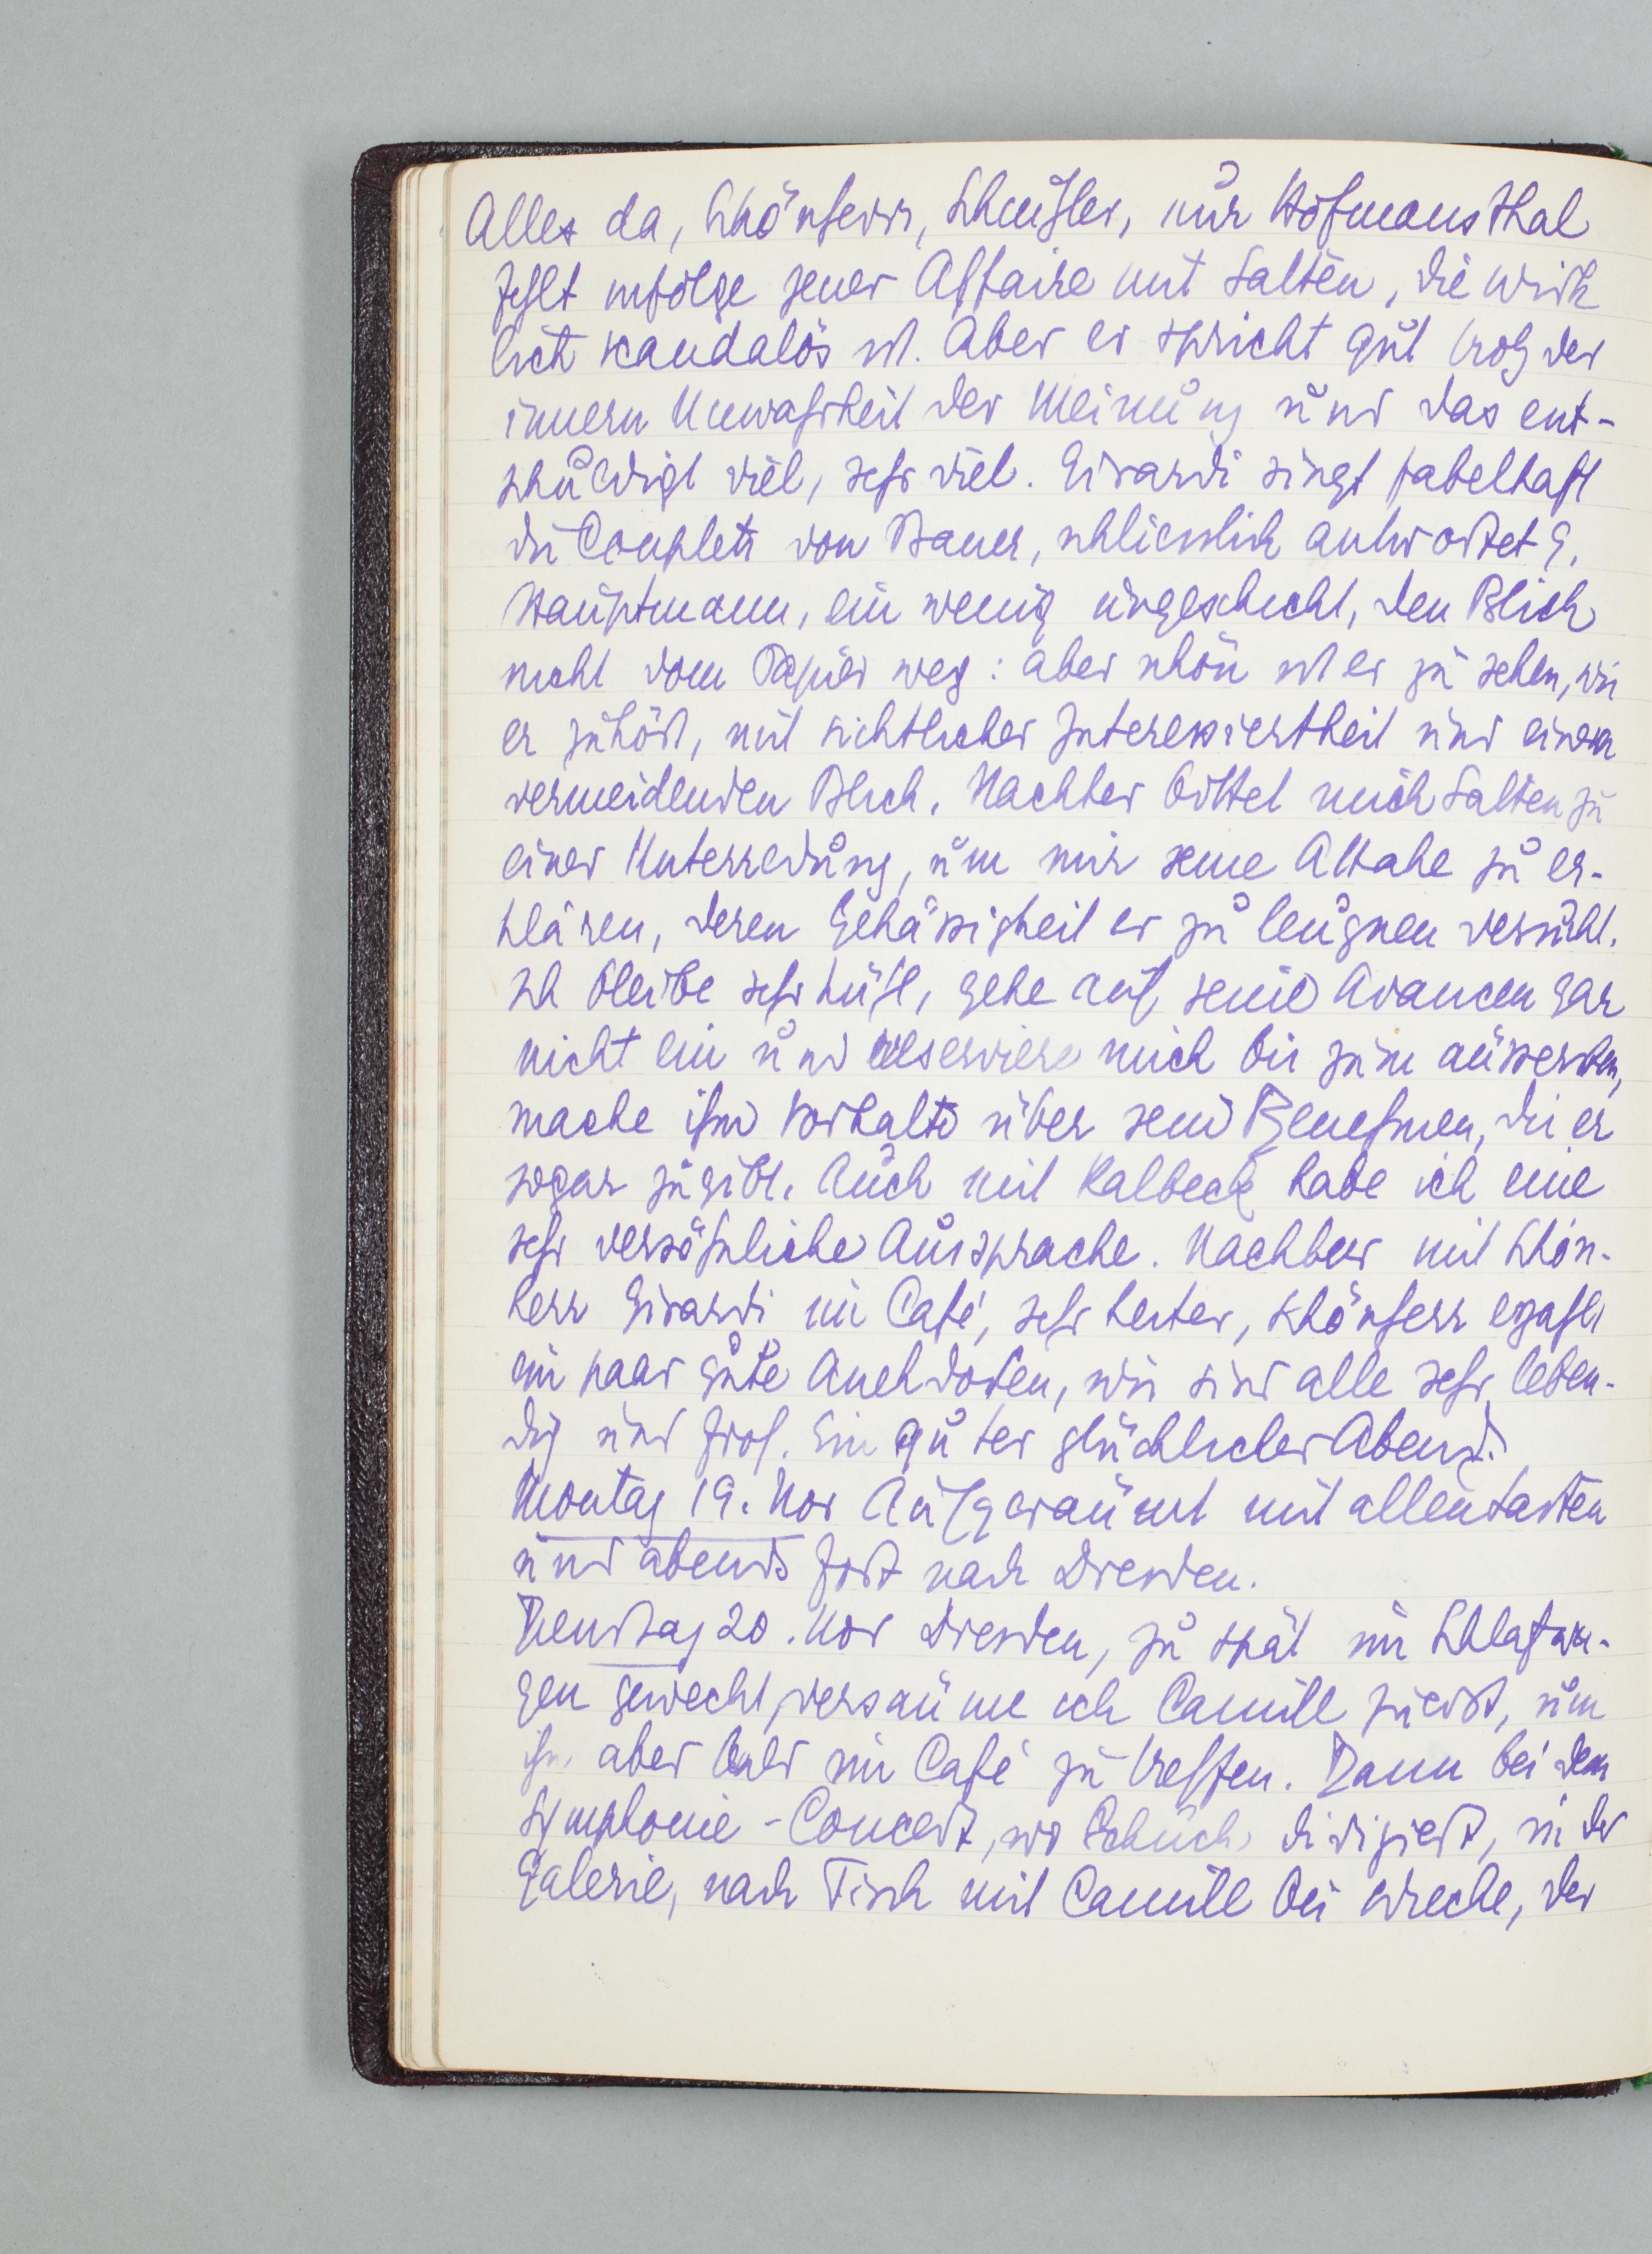 Alles da, Schönherr, Schnitzler, nur Hofmansthal
fehlt infolge jener Affaire mit Salten, die wirk
lich skandalös ist. Aber er spricht gut trotz der
innern Unwahrheit der Meinung und das ent-
schuldigt viel, sehr viel. Girardi singt fabelhaft
die Couplets von Bauer, schliesslich antwortet G.
Hauptmann, ein wenig ungeschickt, den Blick
nicht vom Papier weg: aber schön ist er zu sehen, wie
er zuhört, mit sichtlicher Interessiertheit und einem
vermeidenden Blick. Nachher bittet mich Salten zu
einer Unterredung, um mir seine Attake zu er-
klären, deren Gehässigkeit er zu leugnen versucht.
Ich bleibe sehr kühl, gehe auf seine Avancen gar
nicht ein und reserviere mich bis zum äussersten,
mache ihm Vorhalte über sein Benehmen, die er
sogar zugibt. Auch mit Kalbeck habe ich eine
sehr versöhnliche Aussprache. Nachher mit Schön-
herr Girardi im Café, sehr heiter, Schönherr erzahlt
ein paar gute Anekdoten, wir sind alle sehr leben-
dig und froh. Ein guter glücklicher Abend.
Montag 19. Nov Aufgeräumt mit allen
und abends fort nach Dresden.
Dienstag 20. Nov Dresden, zu spät im Schlafwa-
gen geweckt, versäume ich Camill zuerst, um
ihn aber bald im Café zu treffen. Dann bei dem
Symphonie-Concert, wo Schuch dirigiert, in der
Galerie, nach Tisch mit Camill bei Wiecke, der